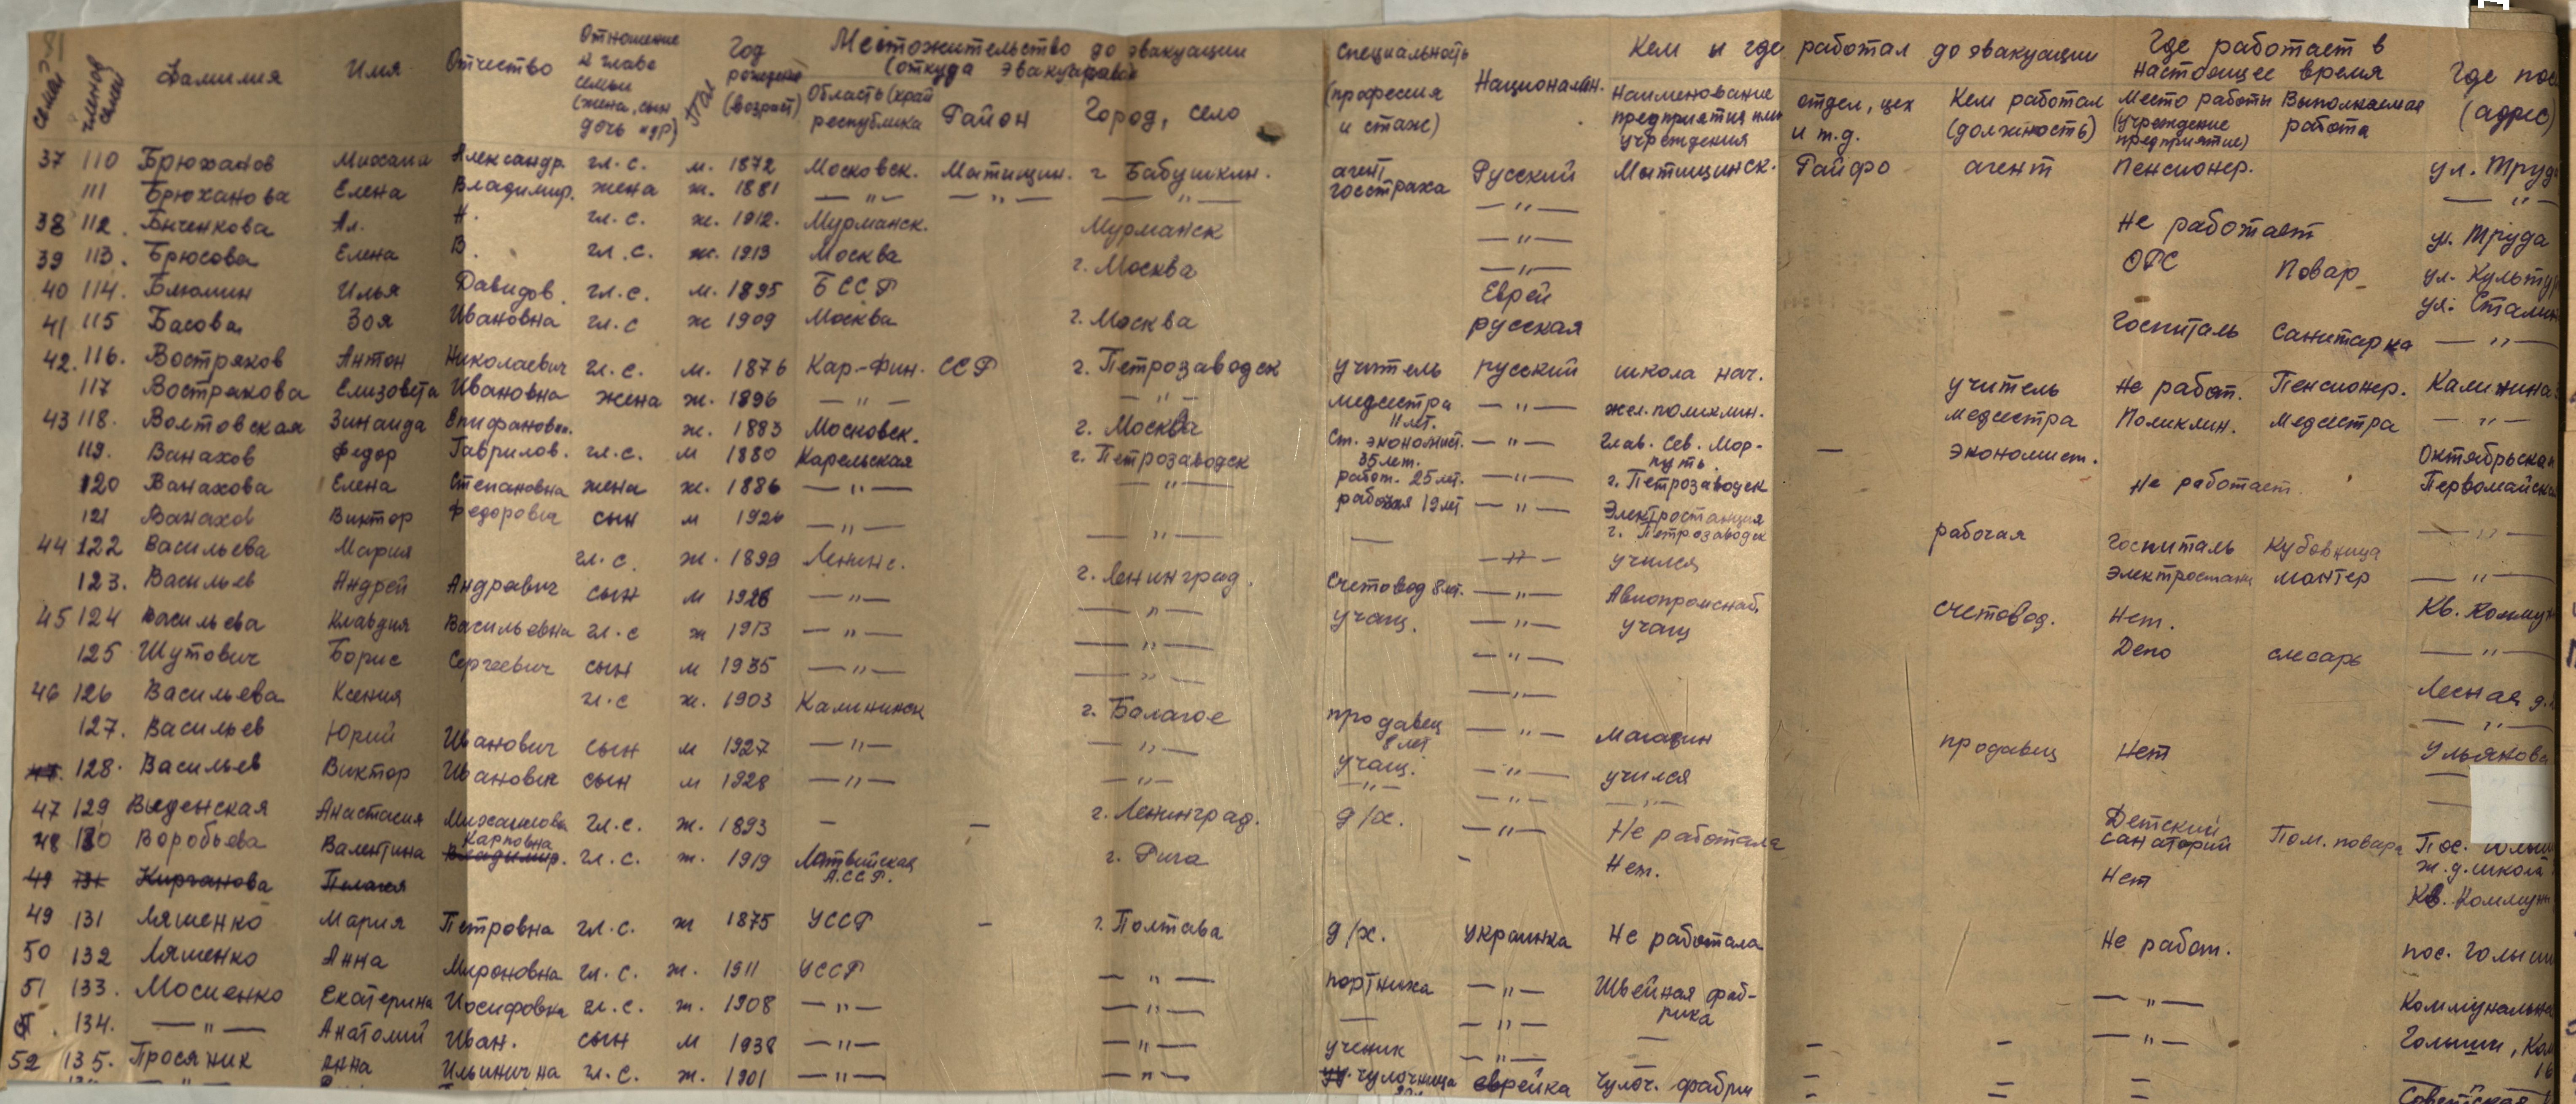 семьи членов семьи Фамилия Имя Отчество Отношение к главе семьи (жена, сын дочь и др) Пол Год рождения (возраст) Местожительство до эвакуации (откуда эвакуирован) Область (край республика Район Город, село Специальность (профессия и стаж) Национальн. Кем и где работал до эвакуации Наименование предприятия или учреждения отдел, цех и т.д. Кем работал (должность) Где работает в настоящее время Место работы (учреждение предприятие) Выполняемая работа Где (адрес)
37 110 Брюханов Михаил Александр. гл. с. м. 1872 Московск. Мытищин. г. Бабушкин. агент госстраха Русский Мытищинск. Райфо агент Пенсионер. ул. Труда
111 Брюханова Елена Владимир. жена ж. 1881 — " — — " — — " — — " — — " —
38 112. Бученкова Ал. Н. гл. с. ж. 1912. Мурманск. Мурманск — " — Не работает ул. Труда
39 113. Брюсова Елена В. гл. с. ж. 1919 Москва г. Москва — " — ОРС Повар ул. Культу
40 114. Блюмин Илья Давидов. гл. с. м. 1895 БССР Еврей ул. Сталин
41 115 Басова Зоя Ивановна гл. с ж 1909 Москва г. Москва русская Госпиталь Санитарка — " —
42. 116. Востряков Антон Николаевич гл. с. м. 1876 Кар.-Фин. ССР г. Петрозаводск учитель русский школа нач. учитель Не работ. Пенсионер. Калинина
117 Вострякова Елизовета Ивановна жена ж. 1896 — " — — " — медсестра 11 лет. — " — жел. поликлин. медсестра Поликлин. Медсестра — " —
43 118. Волтовская Зинаида Епифановн. ж. 1883 Московск. г. Москва Ст. экономист. 35 лет. — " — Глав. Сев. Мор-путь. — экономист. Октябрьская
119. Ванахов Федор Гаврилов. гл. с. м 1880 Карельская г. Петрозаводск работ. 25 лет. — " — г. Петрозаводск Не работает. Первомайска
120 Ванахова Елена Степановна жена ж. 1886 — " — — " — рабочая 19 лет — " — Электростанция г. Петрозаводск рабочая Госпиталь Кубовщица — " —
121 Ванахов Виктор Федорович сын м 1926 — " — — " — — — " — учился Электростанц монтер — " —
44 122 Васильева Мария гл. с. ж. 1899 Ленинс. г. Ленинград. Счетовод 8 лет. — " — Авиопромснаб. счетовод. Нет. Кв. Комму
123. Васильев Андрей Андравич сын м 1926 — " — — " — учащ. — " — учащ Депо слесарь — " —
45 124 Васильева Клавдия Васильевна гл. с ж 1913 — " — — " — — " — Лесная
125 Шутович Борис Сергеевич сын м 1935 — " — — " — — " — — " —
46 126 Васильева Ксения гл. с ж. 1903 Калининск г. Балагое продавец 8 лет — " — магазин продавец Нет Ульянова
127. Васильев Юрий Иванович сын м 1927 — " — — " — учащ. — " — учился —
128. Васильев Виктор Иванович сын м 1928 — " — — " — — " — — " — — " — —
47 129 Веденская Анастасия Михаиловн гл. с. ж. 1893 — — г. Ленинград. д/х. — " — Не работала Детский санаторий Пом. повара Пос.
48 130 Воробьева Валентина Карповна гл. с. ж. 1919 Латвийская А.ССР. г. Рига - Нет. Нет ж. д. школа
49 131 Кирганова Пелагея Кв. Коммун
49 131 Ляшенко Мария Петровна гл. с. ж 1875 УССР - г. Полтава д/х. украинка Не работала Не работ. пос. Голыш
50 132 Ляшенко Анна Мироновна гл. с. ж. 1911 УССР — " — портниха — " — Швейная фаб-рика — " — Коммунальна
51 133. Мосиенко Екатерина Иосифовна гл. с. ж. 1908 — " — — " — — — " — — — " — Голыши, Ком
134. — " — Анатолий Иван. сын м 1938 — " — — " — ученик — " — 16
52 135. Просяник Анна Ильинична гл. с. ж. 1901 — " — — " — чулочница еврейка Чулоч. фабри Советская